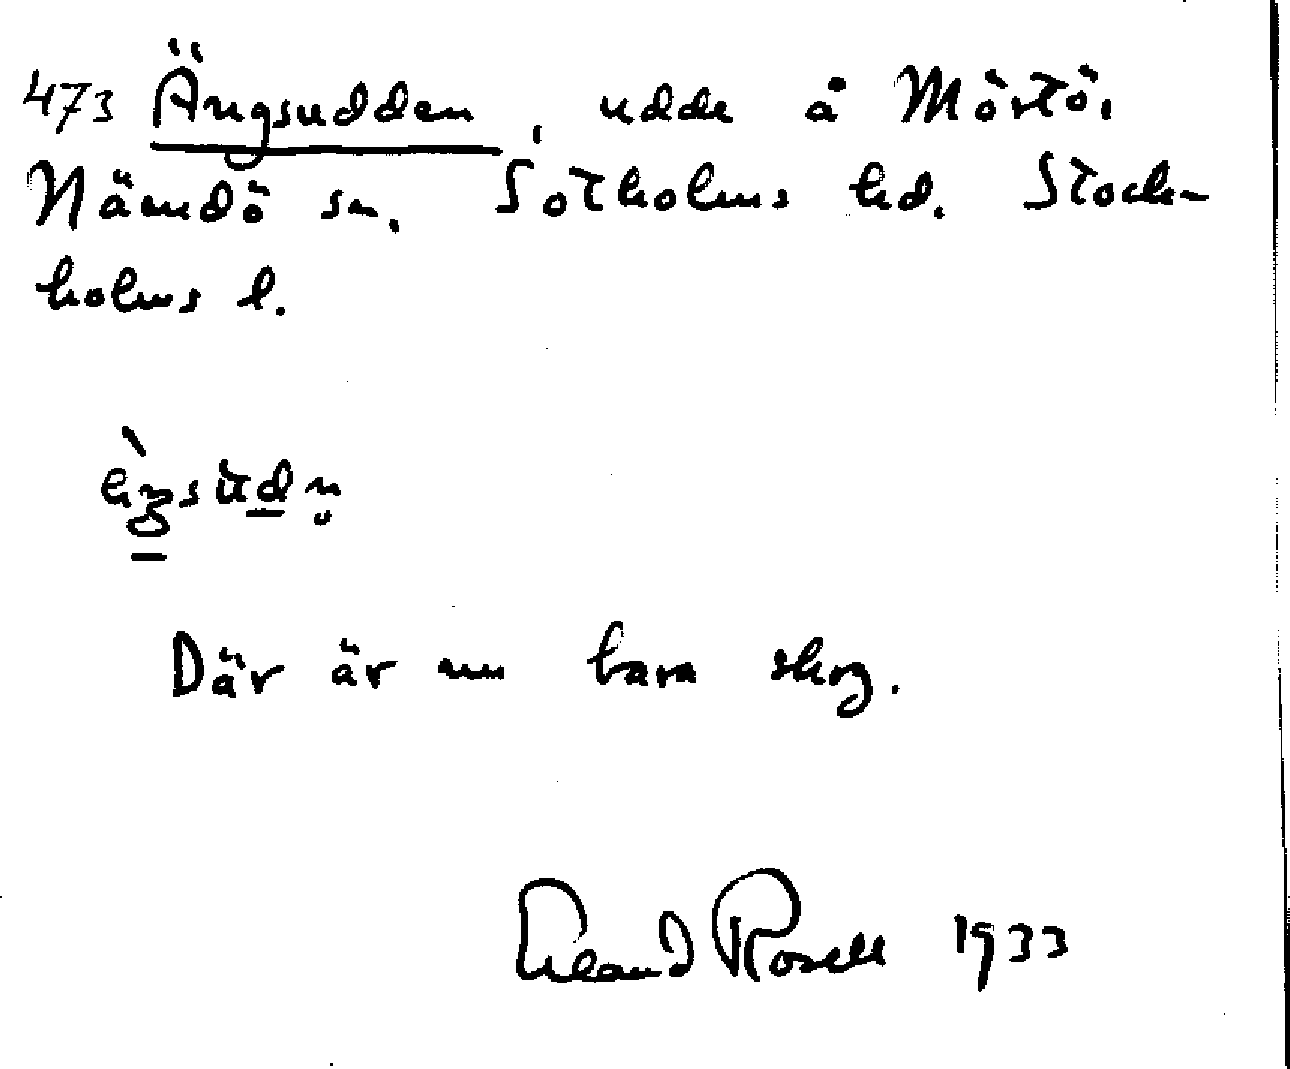 473 Ängsudden, udde å Mörtö,
Nämdö sn. Sotholms hd. Stock-
holms l.
Där är nu bara skog.
Erland Rosell 1933